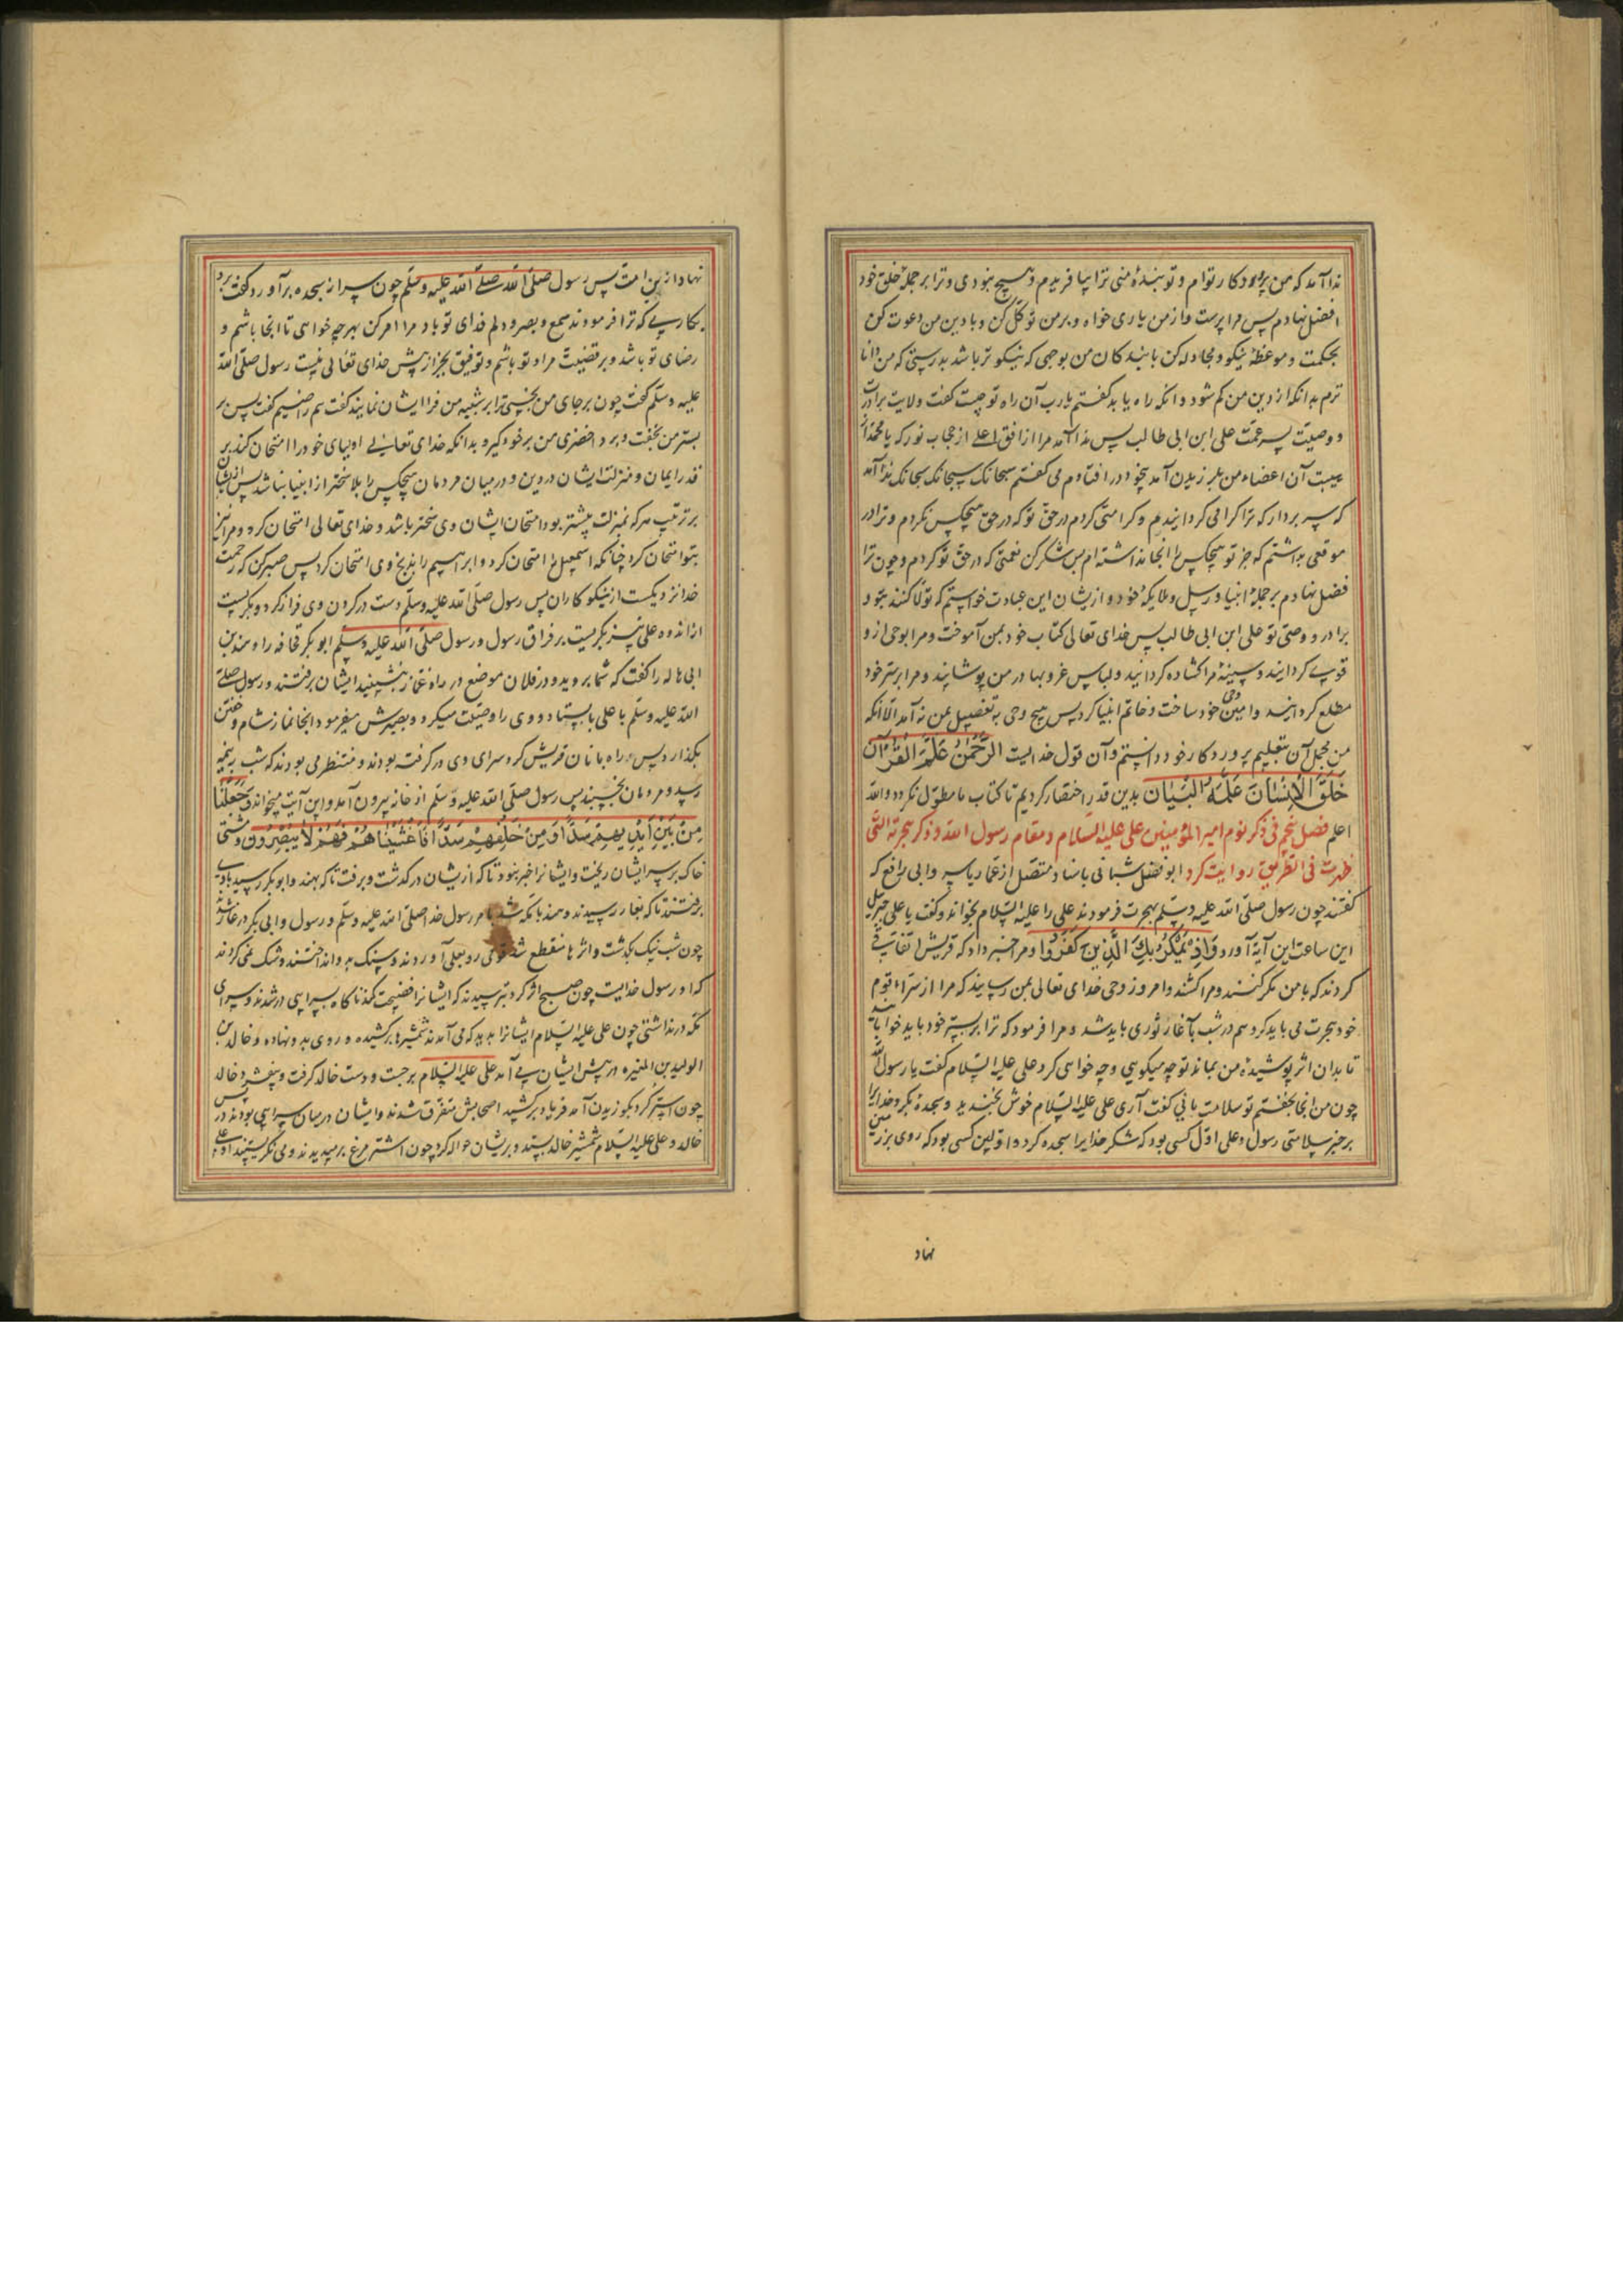 ندا آمد که من پروردکار توام و تو بندهٔ منی ترا بیافریدم و هیچ نبودی و ترا بر جملهٔ خلق خود
افضل نهادم پس مرا پرست و از من یاری خواه و بر من توکّل کن و با دین من دعوت کن
بحکمت و موعظهٔ نیکو و مجادله کن با بندکان من بوجهی که نیکوتر باشد بدرستی که من دانا
ترم بدانکه از دین من کم شود و انکه راه یابد کفتم یا رب آن راه تو چیست کفت ولایت برادرت
و وصیّت پسر عمّت علی ابن ابی طالب پس ندا آمد مرا از افق اعلی از حجاب نور که یا محمّد از
هیبت آن اعضاء من بلرزیدن آمد بیخود در افتادم می کفتم سبحانک سبحانک سبحانک ندا آمد
که سر بردار که ترا کرامی کردانیدم و کرامتی کردم در حقّ تو که در حق هیچکس نکردم و ترا در
موقعی بداشتم که جز تو هیچکس را انجا نداشته ام پس شکر کن نعمتی که در حقّ تو کردم و چون ترا
فضل نهادم بر جملهٔ انبیا و رسل و ملایکهٔ خود و از یشان این عبادت خواستم که تولّا کنند بتو و
برادر و وصیّ تو علی ابن ابی طالب پس خدای تعالی کتاب خود بمن آموخت و مرا بوحی از و
قوی کردانید و سینهٔ مرا کشاده کردانید و لباس عز و بها در من پوشانید و مرا بر سرّ خود
مطلع کردانید و امین وحی خود ساخت و خاتم انبیا کرد پس هیچ وحی به تفصیل بمن نه آمد الّا انکه
من مجمل آن بتعلیم پروردکار خود دانستم و آن قول خدایست الرَّحْمٰنُ عَلَّمَ الْقُرْآنَ
خَلَقَ الْاِنْسَانَ عَلَّمَهُ الْبَیَانَ بدین قدر اختصار کردیم تا کتاب ما مطوّل نکردد واللّه
اعلم فصل پنجم فی ذکر نوم امیر المؤمنین علی علیه السّلام و مقام رسول اللّه و ذکر هجرته الّتی
ظهرت فی الطریق روایت کرد ابو فضل شبانی باسناد متصل از عمّار یاسر و ابی رافع که
کفتند چون رسول صلّی اللّه علیه و سلّم بهجرت فرمودند علی را علیه السّلام بخواند و کفت یا علی جبریل
این ساعت این آیة آورد وَاِذْ یَمْکُرُ بِکَ الَّذِینَ کَفَرُوا و مرا خبر داد که قریش اتفاق
کردند که با من مکر کنند و مرا کشند و امروز وحی خدای تعالی بمن رسانید که مرا از سراء قوم
خود هجرت می باید کرد و هم در شب باغار ثوری باید شد و مرا فرمود که ترا بر بستر خود باید خوابانید
تا بدان اثر پوشیدهٔ من بماند تو چه میکویی و چه خواهی کرد علی علیه السّلام کفت یا رسول اللّه
چون من انجا بخفتم تو سلامت یابی کفت آری علی علیه السّلام خوش بخندید و سجده کرد خدایرا
بر خبر سلامتی رسول و علی اوّل کسی بود که شکر خدایرا سجده کرد و اوّلین کسی بود که روی بزمین
نهاد
نهاد از ین امت پس رسول صلّی اللّه علیه و سلّم چون سر از سجده برآورد کفت برو
بکاری که ترا فرمودند سمع و بصر و دلم فدای تو باد مرا امر کن بهرچه خواهی تا انجا باشم و
رضای تو باشد و بر قضیّت مراد تو باشم و توفیق بجز از پیش خدای تعالی نیست رسول صلّی اللّه
علیه و سلّم کفت چون بر جای من بخسبی ترا بر شبیه من فرا ایشان نمایند کفت هم راضیم کفت پس بر
بستر من بخفت و برد اخضری من برخود کیر و بدانکه خدای تعالی اولیای خود را امتحان کند بر
قدر ایمان و منزلت ایشان در دین و در میان مردمان هیچکس را بلا سختر از انبیا نباشد پس از یشان
بر ترتیب هر که بمنزلت بیشتر بود امتحان ایشان وی سختر باشد و خدای تعالی امتحان کرد و مرا نیز
بتو امتحان کرد چنانکه اسمعیل را امتحان کرد و ابراهیم را بذبح وی امتحان کرد پس صبر کن که رحمت
خدا نزدیکست از نیکوکاران پس رسول صلّی اللّه علیه و سلّم دست در کردن وی فراز کرد و بکریست
از اندوه علی نیز بکریست بر فراق رسول و رسول صلّی اللّه علیه و سلّم ابو بکر قحافه را و هند بن
ابی هاله را کفت که شما بروید و در فلان موضع در راه غار بنشینید ایشان برفتند و رسول صلّی
اللّه علیه و سلّم با علی بایستاد و وی را وصیّت میکرد و بصبرش میفرمود تا انجا نماز شام و خفتن
بکذارد پس راه بانان قریش کرد سرای وی در کرفته بودند و منتظر می بودند که شب به نیمه
رسید و مردمان بخسبند پس رسول صلّی اللّه علیه و سلّم از خانه بیرون آمد و این آیت میخواند وَجَعَلْنَا
مِنْ بَیْنِ اَیْدِیهِمْ سَدًّا وَمِنْ خَلْفِهِمْ سَدًّا فَاَغْشَیْنَاهُمْ فَهُمْ لَا یُبْصِرُونَ و مشتی
خاک بر سر ایشان ریخت و ایشانرا خبر نبود تا که از یشان در کذشت و برفت تا که بهند و ابو بکر رسید با وی
برفتند تا که بغار رسیدند و هند با مکه شد بامر رسول خدا صلّی اللّه علیه و سلّم و رسول و ابی بکر در غار شدند
چون شب نیک بکذشت و اثرها منقطع شد قومی رو بعلی آوردند و سنک به و انداختند و شک نمی کردند
که او رسول خدایست چون صبح اثر کرد بترسیدند که ایشانرا فضیحت کند ناکاه بسرایی در شدند و سرای
مکه در نداشتی چون علی علیه السّلام ایشانرا بدید که می آمدند شمشیرها برکشیده و روی بدو نهاده و خالد بن
الولید بن المغیره در پیش ایشان می آمد علی علیه السّلام برجست و دست خالد کرفت و بیفشرد خالد
چون اشتر کرد بکوزیدن آمد فریاد برکشید اصحابش متفرّق شدند و ایشان در میان سرایی بودند پس در
خالد و علی علیه السّلام شمشیر خالد بستد و بریشان حواله کرد چون اشتر مرغ برمیدند و می نکریستند